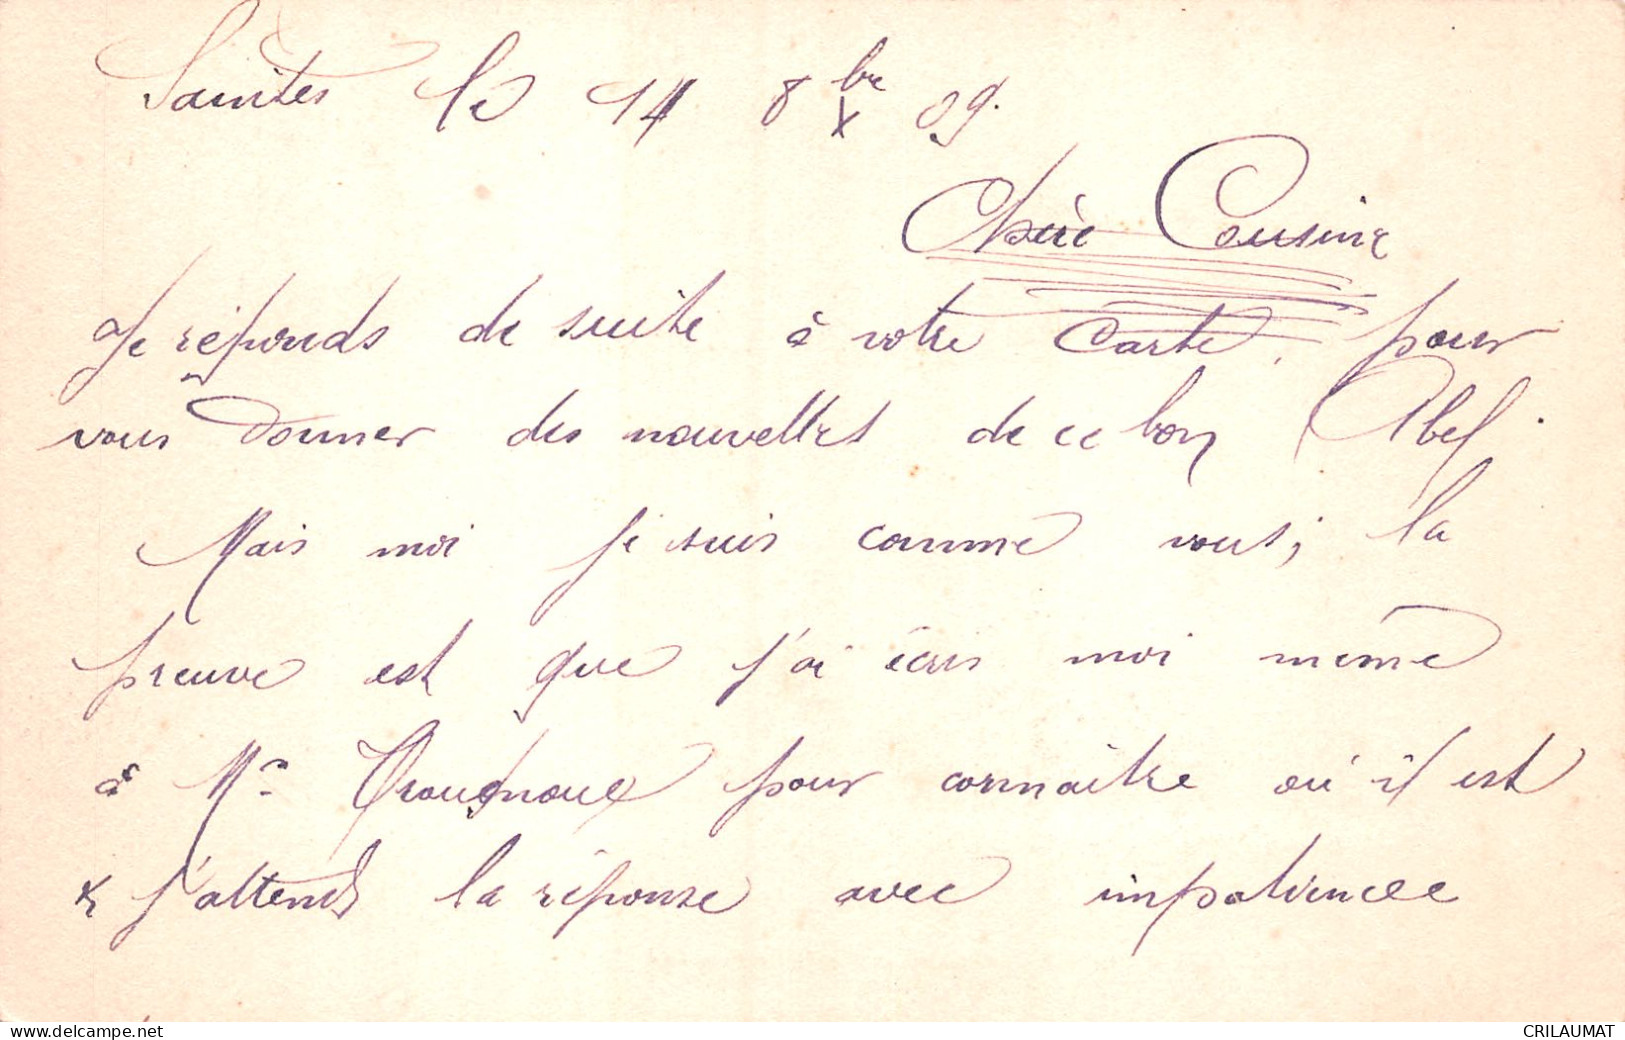 Saintes le 14 8bre 09.
x
Chère Cousine
Je réponds de suite à votre carte, pour
vous donner des nouvelles de ce bon Abel.
Mais moi je suis comme vous, la
preuve est que j'ai écris moi même
à Mr pour connaitre où il est
& j'attends la réponse avec impatience
www.delcampe.net
CRILAUMAT